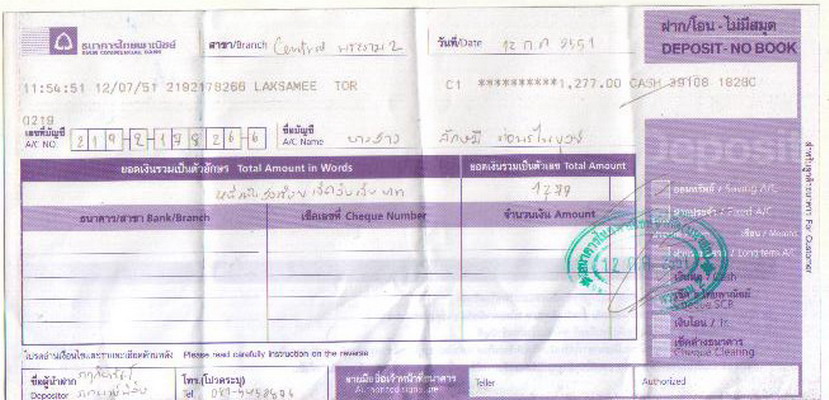 ธนาคารไทยพาณิชย์ สาขา/Branch Central พระราม 2 วันที่/Date 12 ก.ค 2551 ฝาก/โอน - ไม่มีสมุด
SIAM COMMERCIAL BANK DEPOSIT- NO BOOK
11:54:51 12/07/51 2192178266 LAKSAMEE TOR C1 **********1,277.00 CASH 39108 1828C
0219
เลขที่บัญชี A/C NO. 2 1 9 - 2 - 1 7 8 2 6 - 6 ชื่อบัญชี A/C Name นางสาว ลักษมี
ยอดเงินรวมเป็นตัวอักษร Total Amount in Words ยอดเงินรวมเป็นตัวเลข Total Amount
หนึ่งพันสองร้อยเจ็ดสิบเจ็ด บาท 1277
ออมทรัพย์ / Saving A/C
ธนาคาร/สาขา Bank/Branch เช็คเลขที่ Cheque Number จำนวนเงิน Amount
ฝากประจำ / Fixed A/C
เดือน / Months
/ Long term A/C
เงินสด / Cash
เช็คไทยพาณิชย์
Cheque SCB
เงินโอน / Tr.
เช็คต่างธนาคาร
Cheque Clearing
สำหรับลูกค้าธนาคาร For Customer
โปรดอ่านเงื่อนไขและรายละเอียดด้านหลัง Please read carefully instruction on the reverse
ชื่อผู้นำฝาก Depositor โทร.(โปรดระบุ) Tel. ลายมือชื่อเจ้าหน้าที่ธนาคาร Authorized signature Teller Authorized